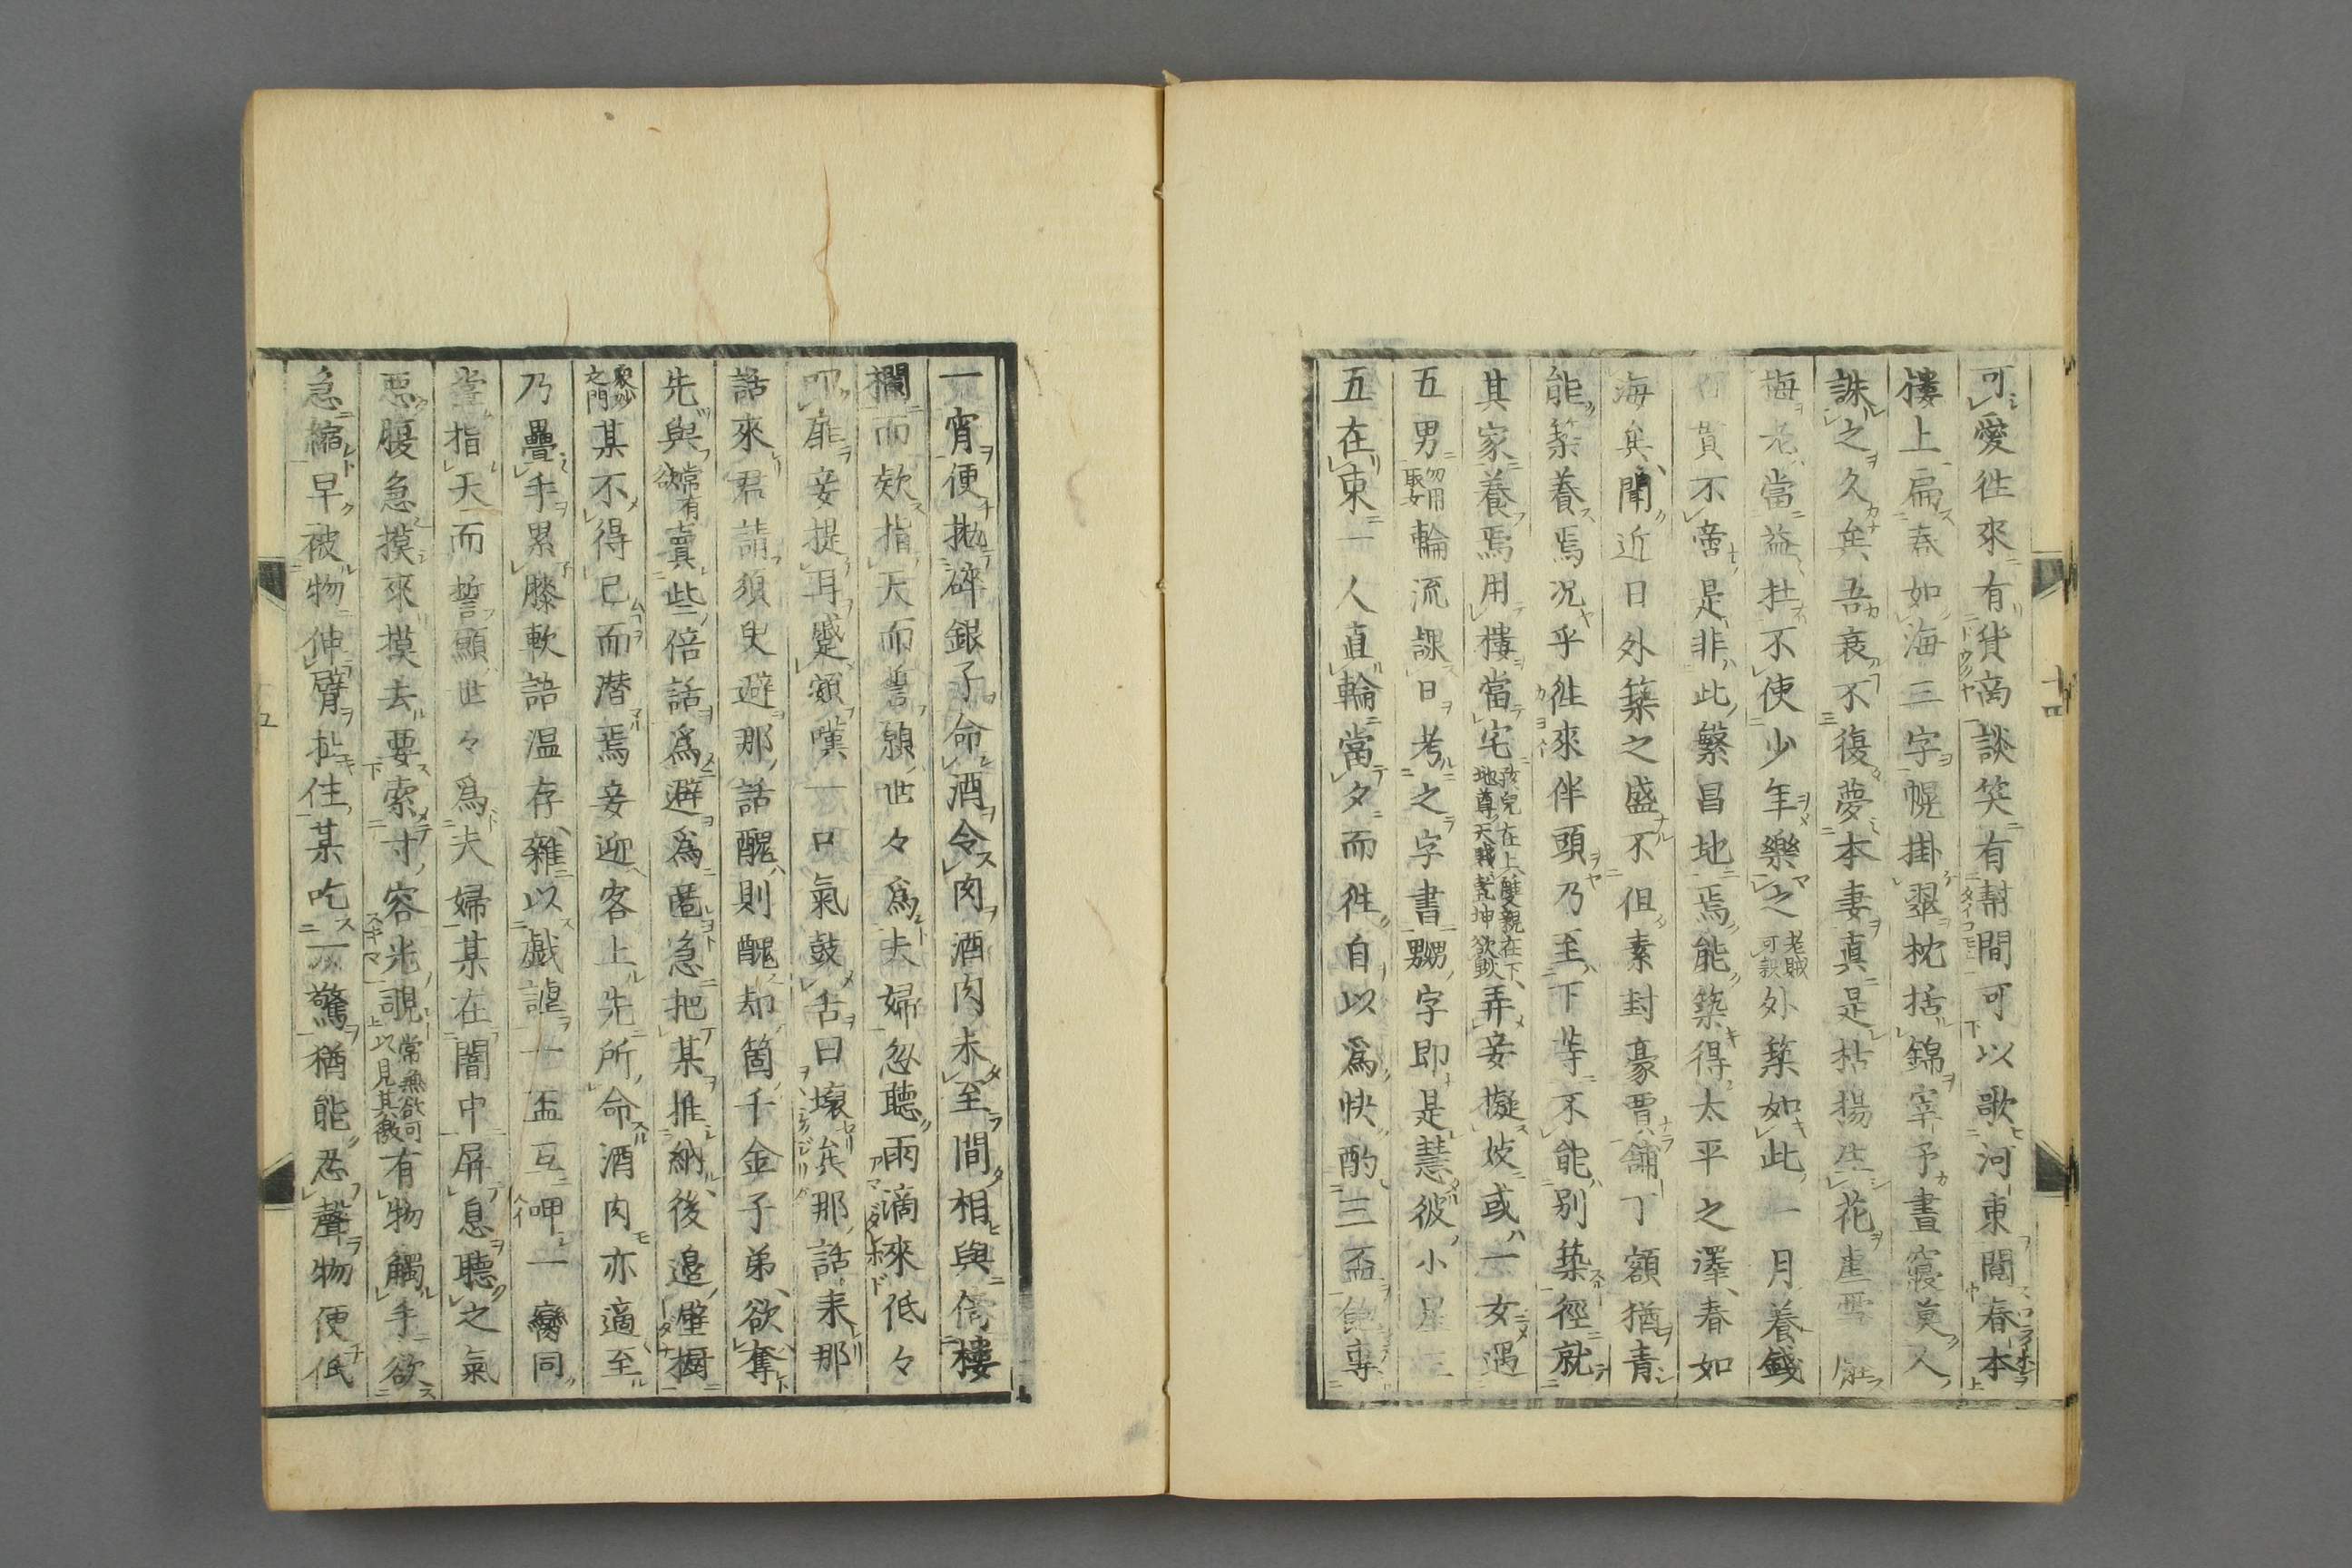 可愛徃來有貨商談笑有幇間可以歌河東閲春本
樓上扁春如海三字幌掛翠枕括錦宰予晝寢莫入
誅之久矣吾衰不復夢本妻真是枯楊生花崖雪壓
梅老當益壯不使少年樂之老賊可款外築如此一月養錢
貲不啻是非此繁昌地焉能築得太平之澤春如
海矣聞近日外築之盛不但素封豪賈舖丁額猶青
能築養焉况乎徃來伴頭乃至下等不能別築徑就
其家養焉用樓當宅孩兒在上雙親在下地尊天賤乾坤欲歟弄妾擬妓或一女遇
五男勿用取女輪流課日考之字書嬲字即是慧彼小星三
五在東一人直輪當夕而徃自以爲快酌三盃飽專
十四
一宵便抛碎銀子命酒令肉酒肉未至間相與倚樓
欄而欸指天而誓願世々爲夫婦忽聽雨滴來低々
叩扉妾提耳蹙額嘆一口氣鼓舌曰壞矣那話来那
話來君請須臾避那話醜則醜却箇千金子弟欲奪
先與常有欲賣些倍話爲避爲匿急把某推納後邉壁櫥
衆妙之門某不得已而潜焉妾迎客上先所命酒肉亦適至
乃疊手累膝軟語温存雜以戯謔一盃互呷一臠同
甞指天而誓願世々爲夫婦某在闇中屏息聽之氣
惡腹急摸來摸去要索寸容光覘常無欲可以見其徼有物觸手欲
急縮早被物伸臂扯住某吃一驚猶能忍聲物便低
五